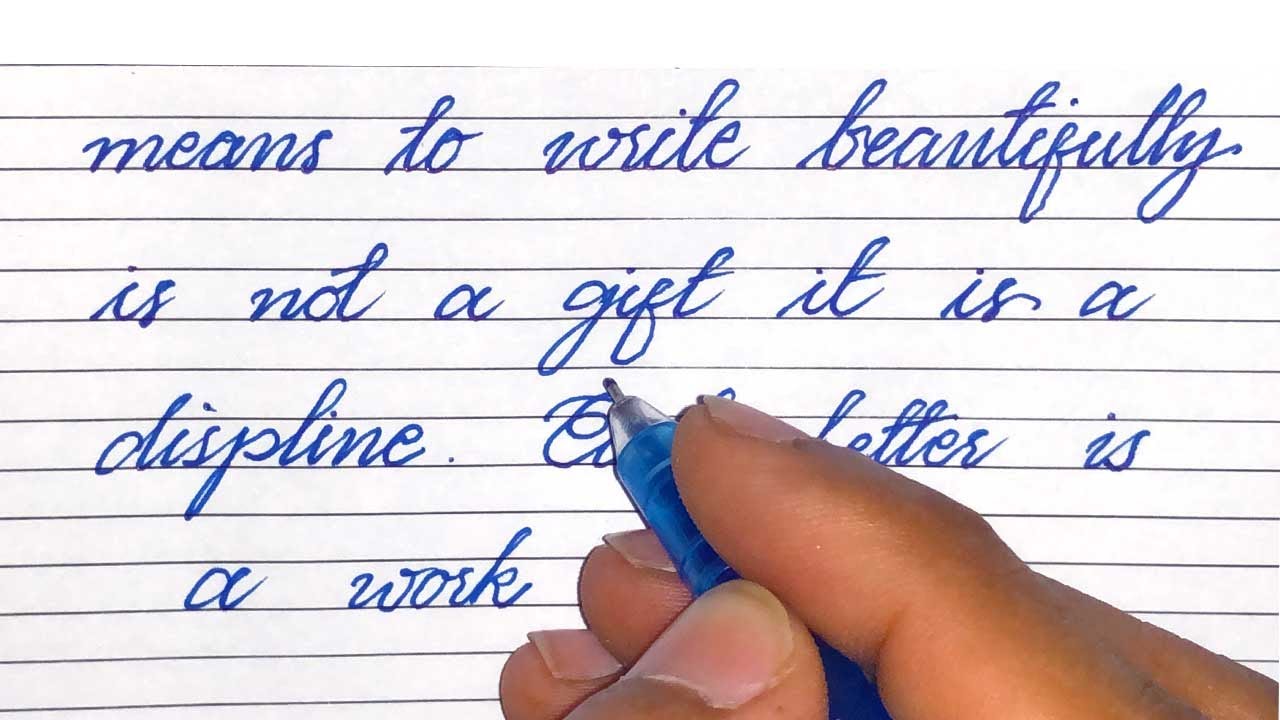 means to write beautifully
is not a gift it is a
displine. letter is
a work